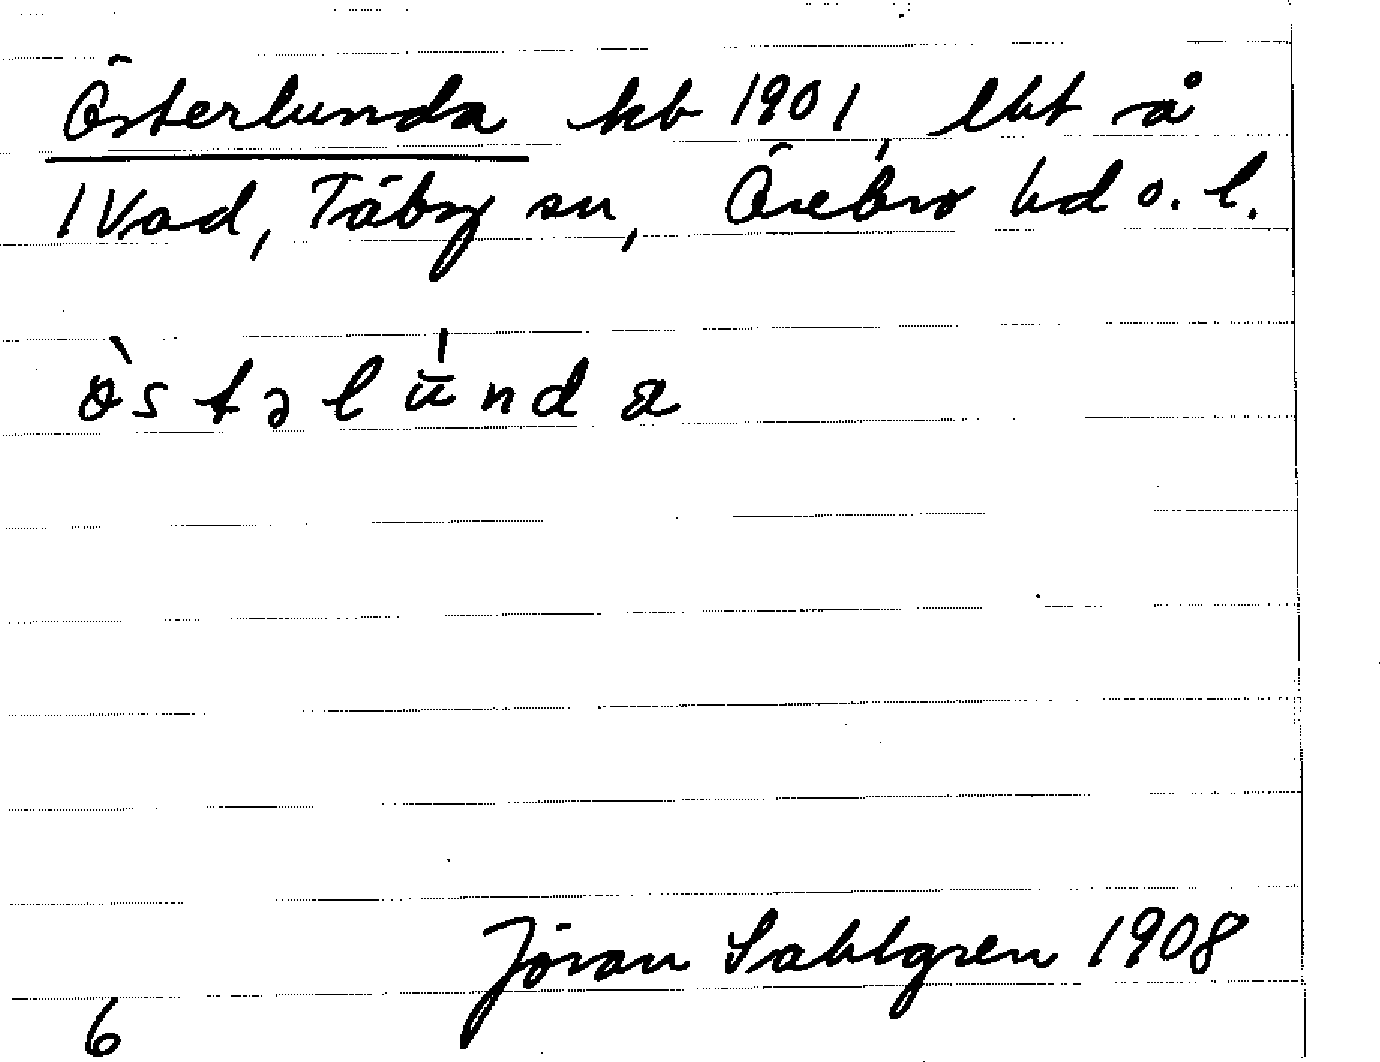 Österlunda kb 1901, lht å
1 Vad, Täby sn, Örebro hd o. l.
ò̀stəlū́nda
Jöran Sahlgren 1908
6